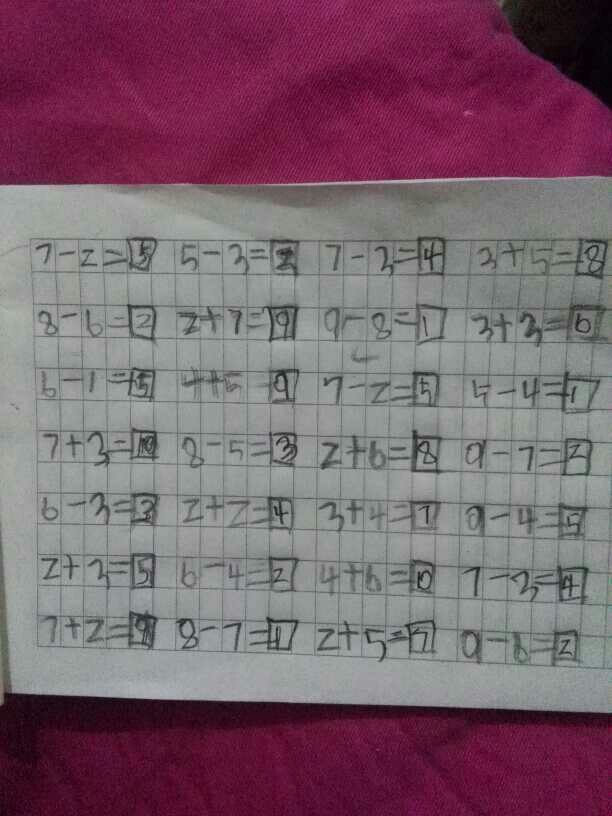 7-2=5 5-3=2 7-3=4 3+5=8
8-6=2 2+7=9 9-8=1 3+3=6
6-1=5 4+5=9 7-2=5 5-4=1
7+3=10 8-5=3 2+6=8 9-7=2
6-3=3 2+2=4 3+4=7 9-4=5
2+3=5 6-4=2 4+6=10 7-3=4
7+2=9 8-7=1 2+5=7 9-6=2